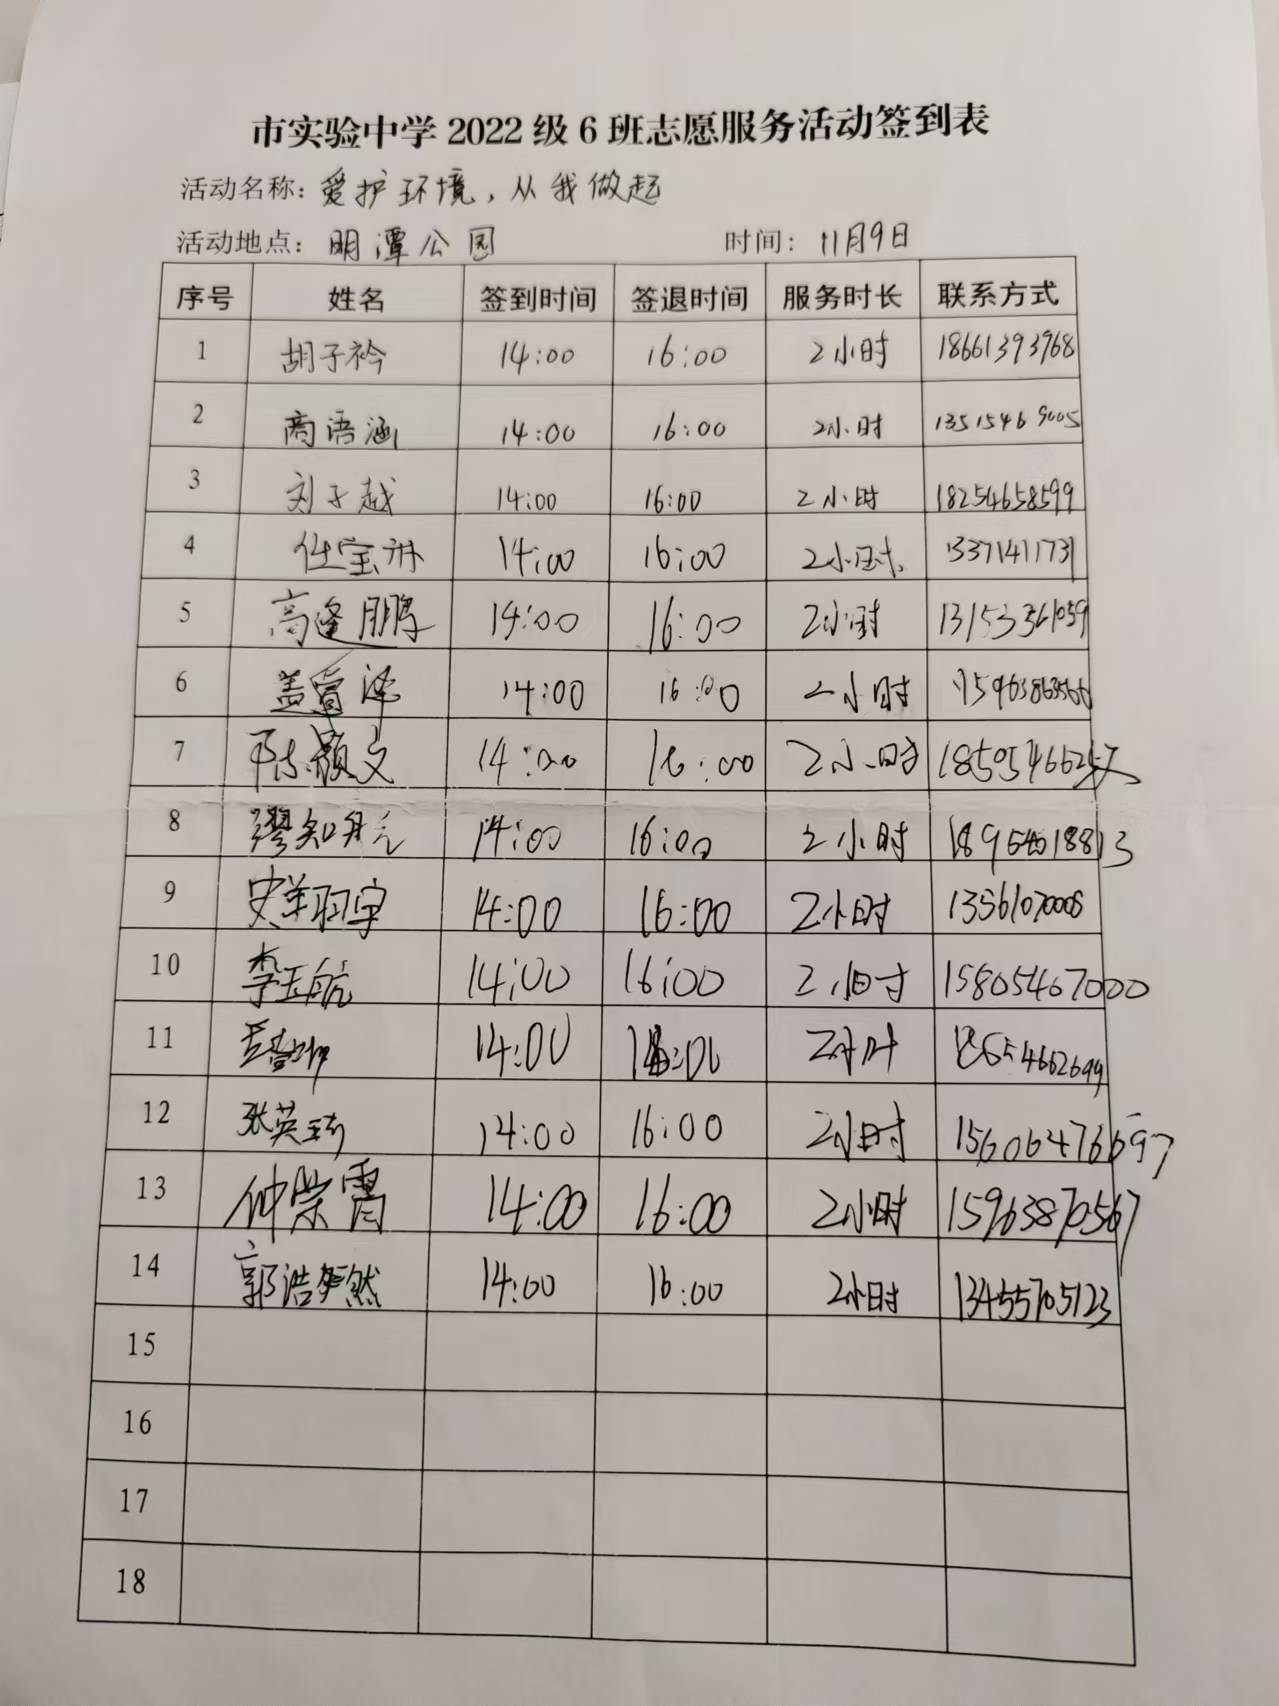 市实验中学 2022 级 6 班志愿服务活动签到表
活动名称：爱护环境，从我做起
活动地点：明潭公园 时间：11月9日
序号 姓名 签到时间 签退时间 服务时长 联系方式
1 胡子衿 14:00 16:00 2小时 18661393968
2 商语涵 14:00 16:00 2小时 13515469005
3 刘子越 14:00 16:00 2小时 18254658599
4 任宝琳 14:00 16:00 2小时 13371411731
5 高逢朋 14:00 16:00 2小时 13153361059
6 盖 泽 14:00 16:00 2小时
7 陈颖文 14:00 16:00 2小时
8 缪知 14:00 16:00 2小时
9 史羽宇 14:00 16:00 2小时
10 李玉航 14:00 16:00 2小时 15805467000
11 14:00 2小时 18654662699
12 张英琦 14:00 16:00 2小时 15606476697
13 仲崇霄 14:00 16:00 2小时 15963870567
14 郭浩然 14:00 16:00 2小时 13455705123
15
16
17
18